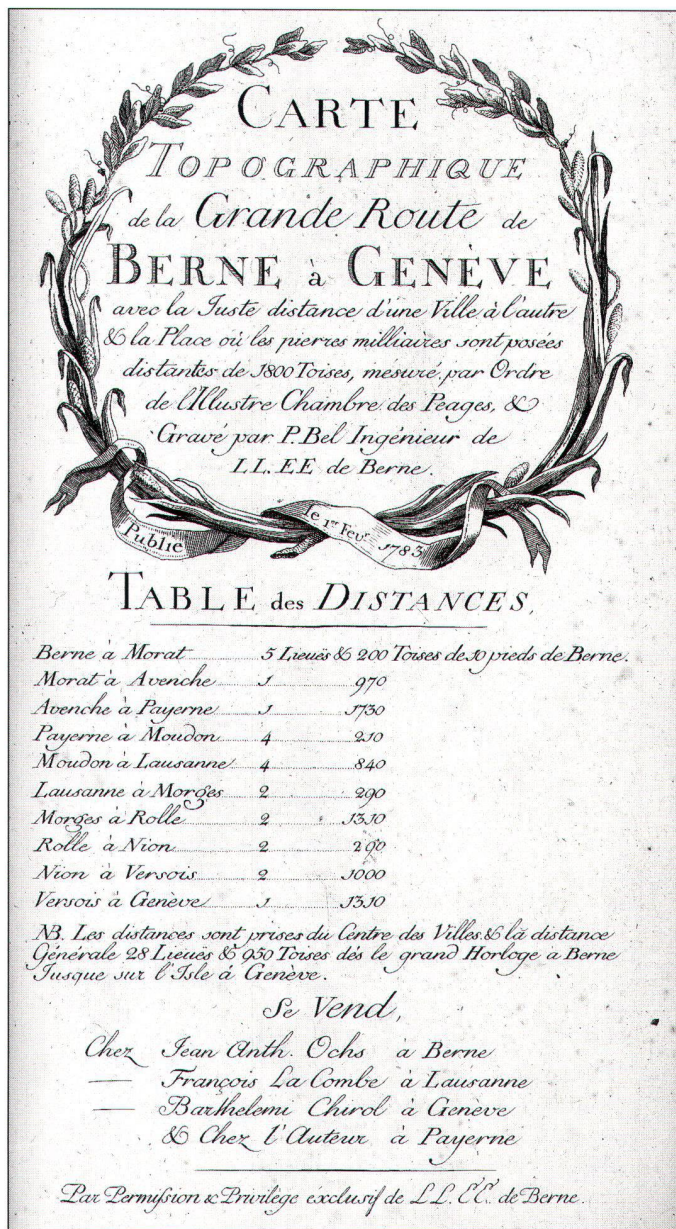 CARTE
TOPOGRAPHIQUE
de la Grande Route de
BERNE à GENÈVE
avec la Juste distance d'une Ville à l'autre
& la Place où les pierres milliaires sont posées
distantes de 1800 Toises, mésuré par Ordre
de l'Illustre Chambre des Peages, &
Gravé par P. Bel Ingénieur de
LL. EE de Berne.
Publié le 1er Fevr. 1783
TABLE des DISTANCES,
Berne à Morat 5 Lieuës & 200 Toises de 10 pieds de Berne.
Morat à Avenche 1 970
Avenche à Payerne 1 1730
Payerne à Moudon 4 210
Moudon à Lausanne 4 840
Lausanne à Morges 2 290
Morges à Rolle 2 1310
Rolle à Nion 2 290
Nion à Versois 2 1000
Versois à Genève 1 1310
NB. Les distances sont prises du Centre des Villes & la distance
Générale 28 Lieuës & 950 Toises dés le grand Horloge à Berne
Jusque sur l'Isle à Genève.
Se Vend,
Chez Jean Anth. Ochs à Berne
— François La Combe à Lausanne
— Barthelemi Chirol à Genève
& Chez l'Auteur à Payerne
Par Permission & Privilege éxclusif de LL. EE. de Berne.